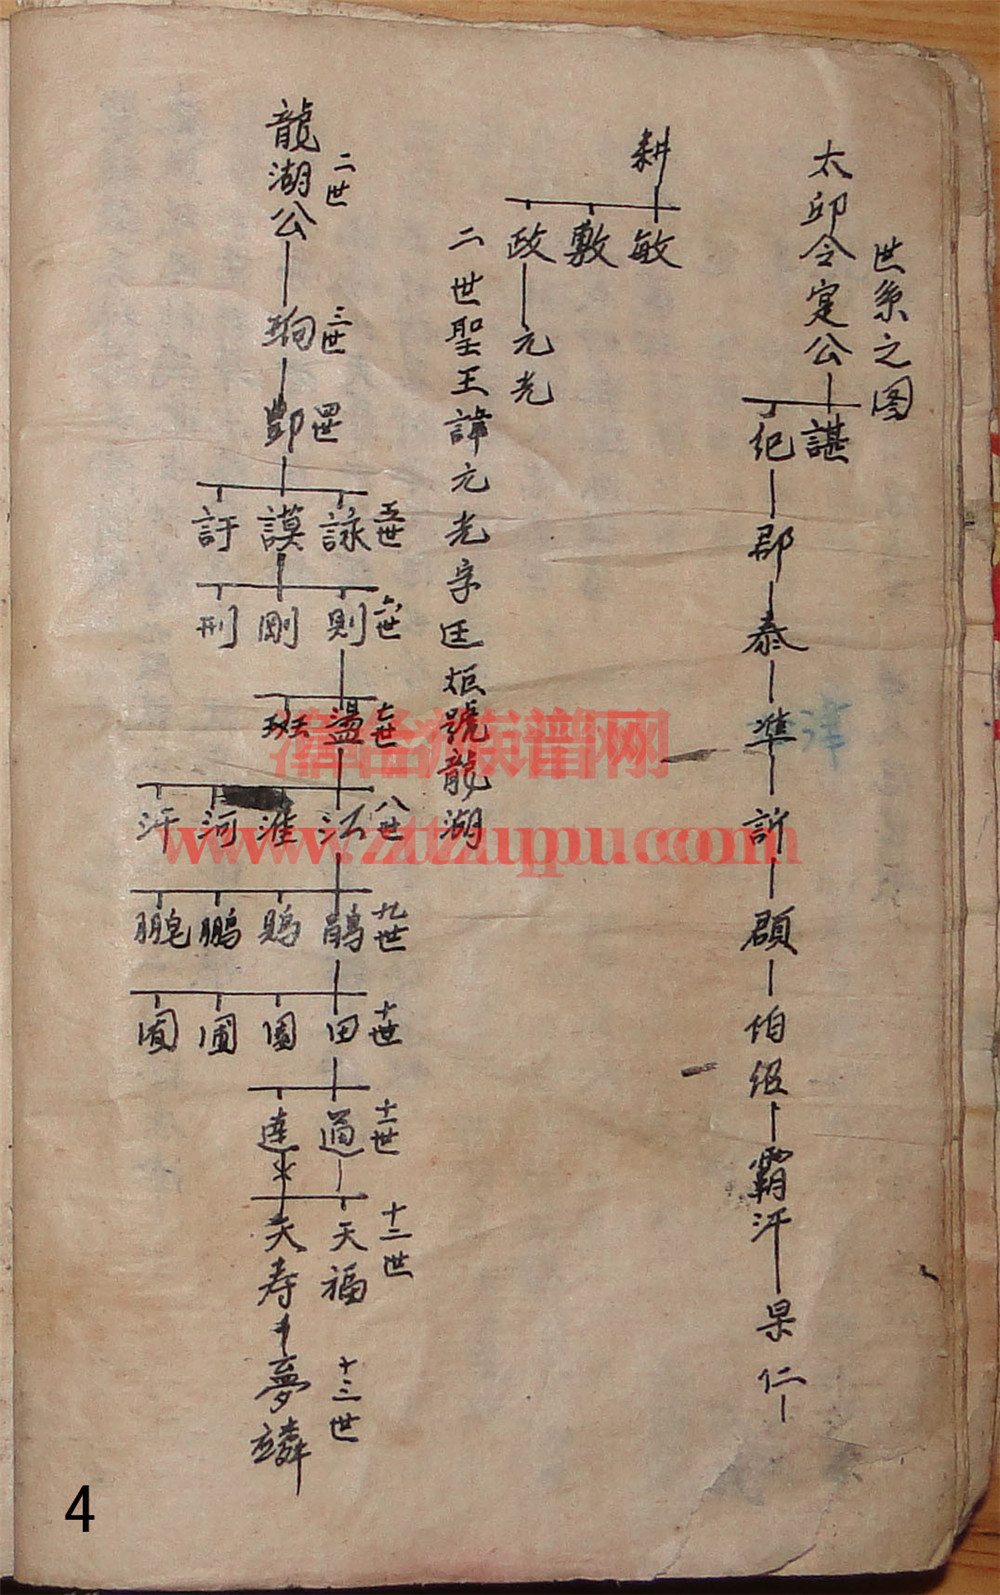 世系之图
太邱令寔公
諶
紀
郡
泰
準
訢
頵
伯
霸汗
果仁
津
耕
敏
敷
政
元光
二世聖王諱元光字廷炬號龍湖
二世
龍湖公
三世
珣
四世
鄷
五世
詠
謨
訏
六世
則
剛
刑
七世
盪
班
八世
江
淮
河
汗
九世
鵑
鵬
十世
田
園
圃
囿
十一世
通
達
十二世
天福
天寿
十三世
夢
www.ztzupu.com
族谱网
4